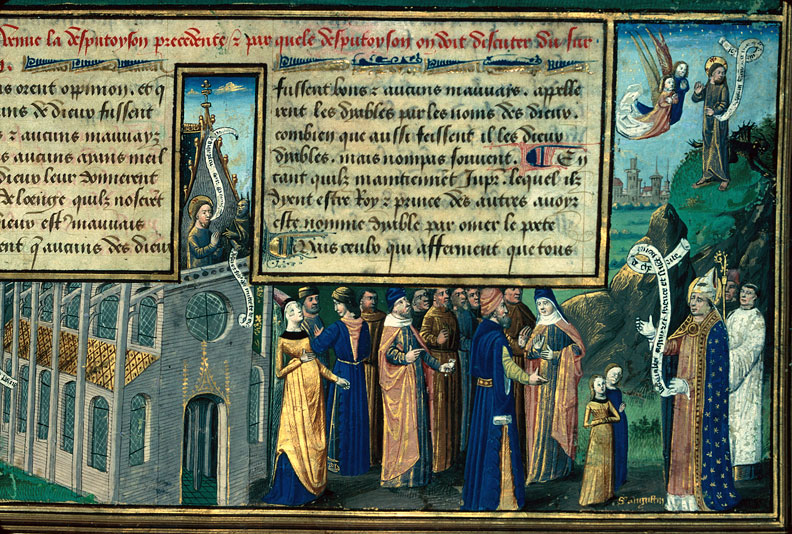 venue la desputoyson precedente & par quele desputoyson on doit discuter du sur
us orent oppinion. et q
ins de dieux fussent
s & aucuns mauuayz
s aucuns ayans meil
dieux leur donnerent
de loenge quilz noserent
dieux est mauuais
ent q aucuns des dieux
fussent bons & aucuns mauuays. appelle
rent les dyables par les noms des dieux.
combien que aussi feissent il les dieux
dyables. mais nompas souuent. En
tant quilz maintiennent Jupr. lequel ilz
dyent estre Roy & prince des autres auoyr
este nomme dyable par omer le poete
Mais ceulx qui afferment que tous
S augustin